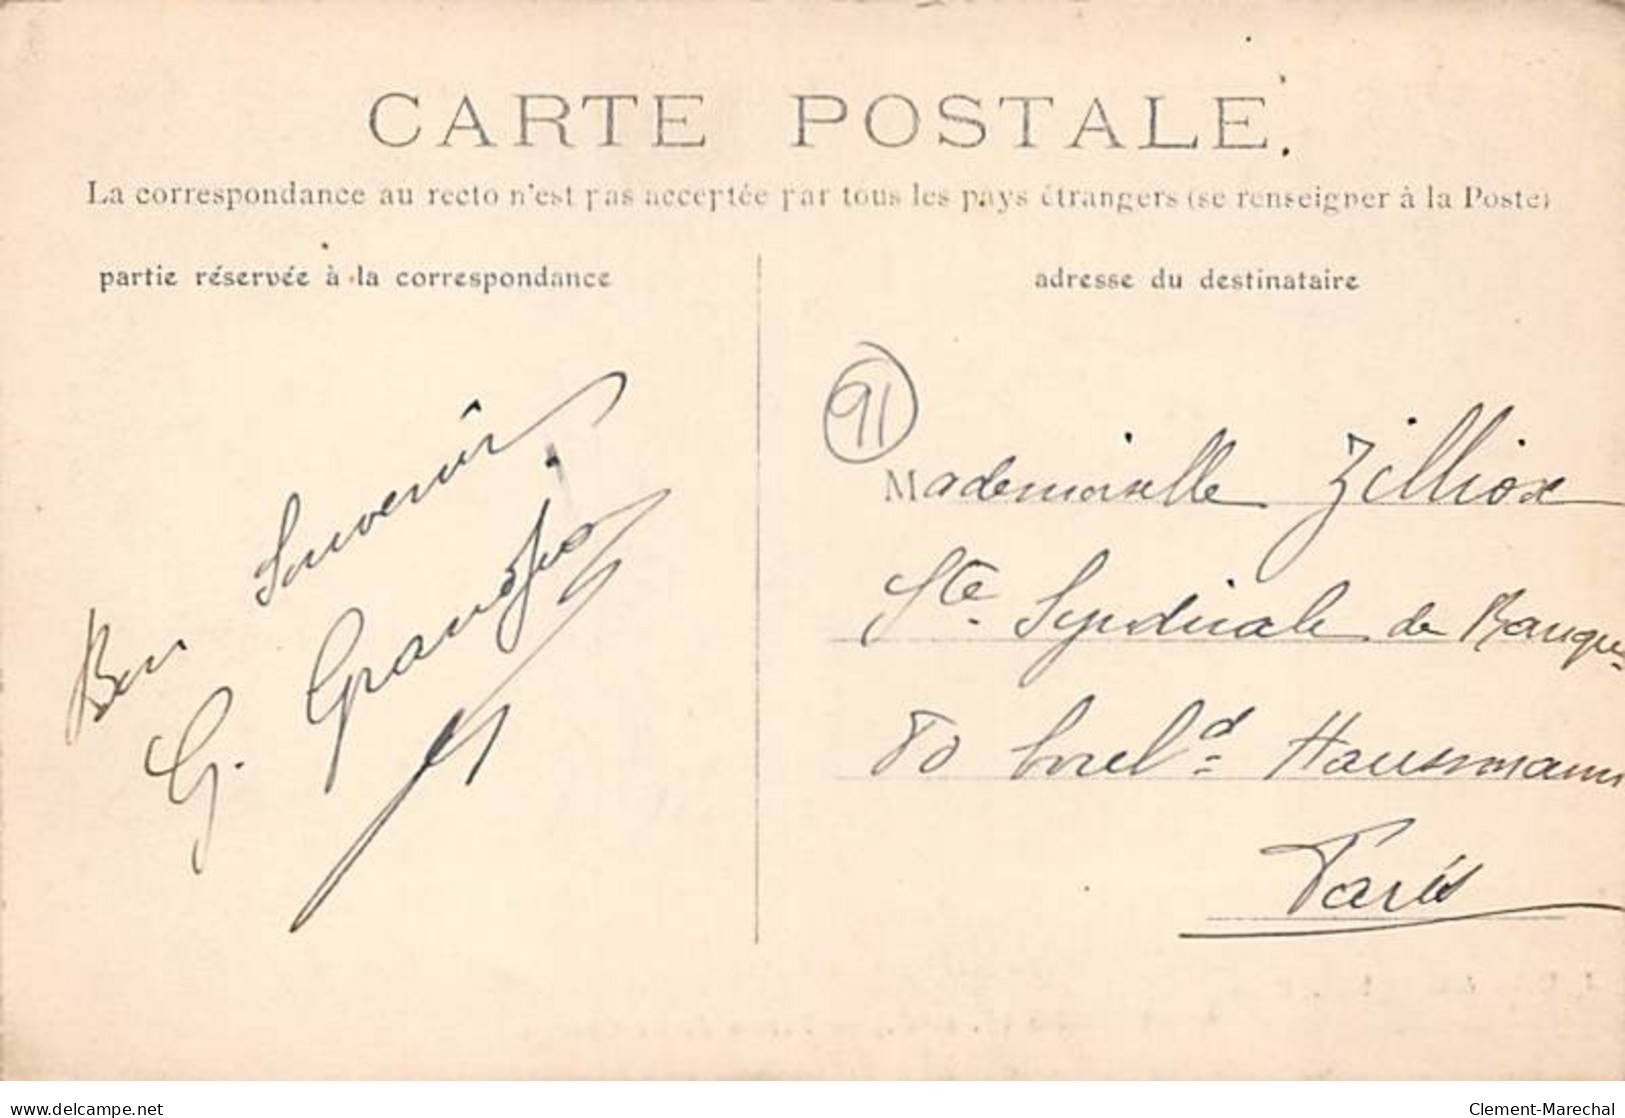 CARTE POSTALE.
La correspondance au recto n'est pas acceptée par tous les pays étrangers (se renseigner à la Poste)
partie réservée à la correspondance
Bon Souvenir
G.
adresse du destinataire
91
Mademoiselle Zilliox
Sté Syndicale de Banque
80 boulᵈ Haussmann
Paris
delcampe.net
Clement-Marechal